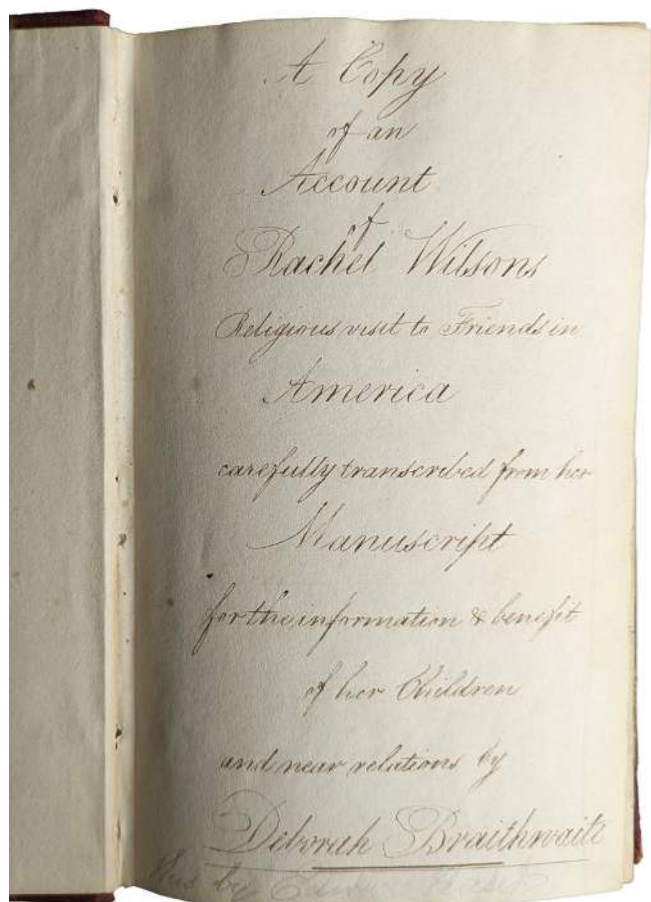 A Copy
of an
Account
of
Rachel Wilsons
Religious visit to Friends in
America
carefully transcribed from her
Manuscript
for the information & benefit
of her Children
and near relations by
Deborah Braithwaite
this by Edward Pease